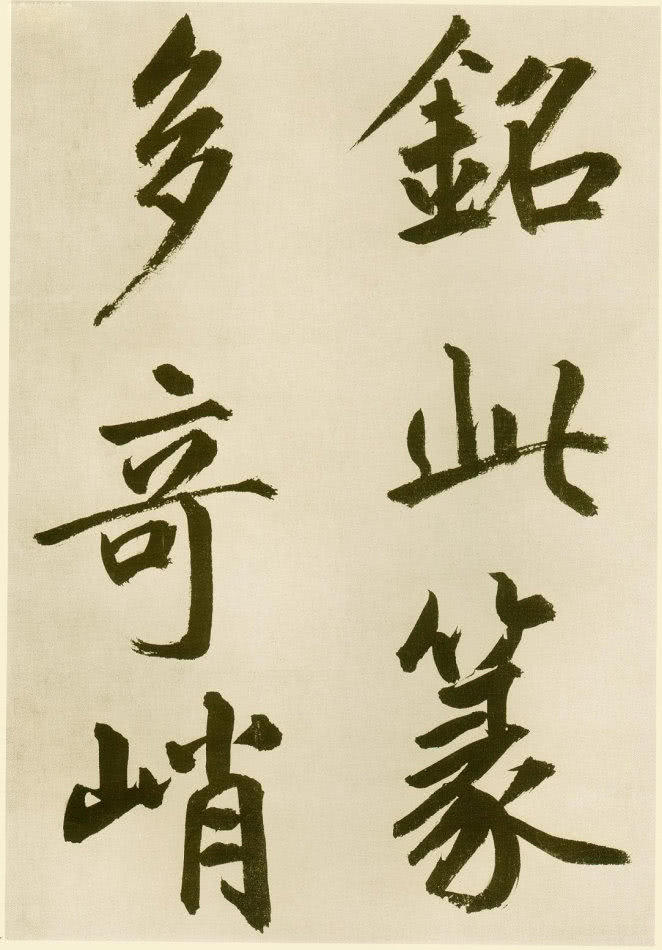 銘此篆
多竒峭